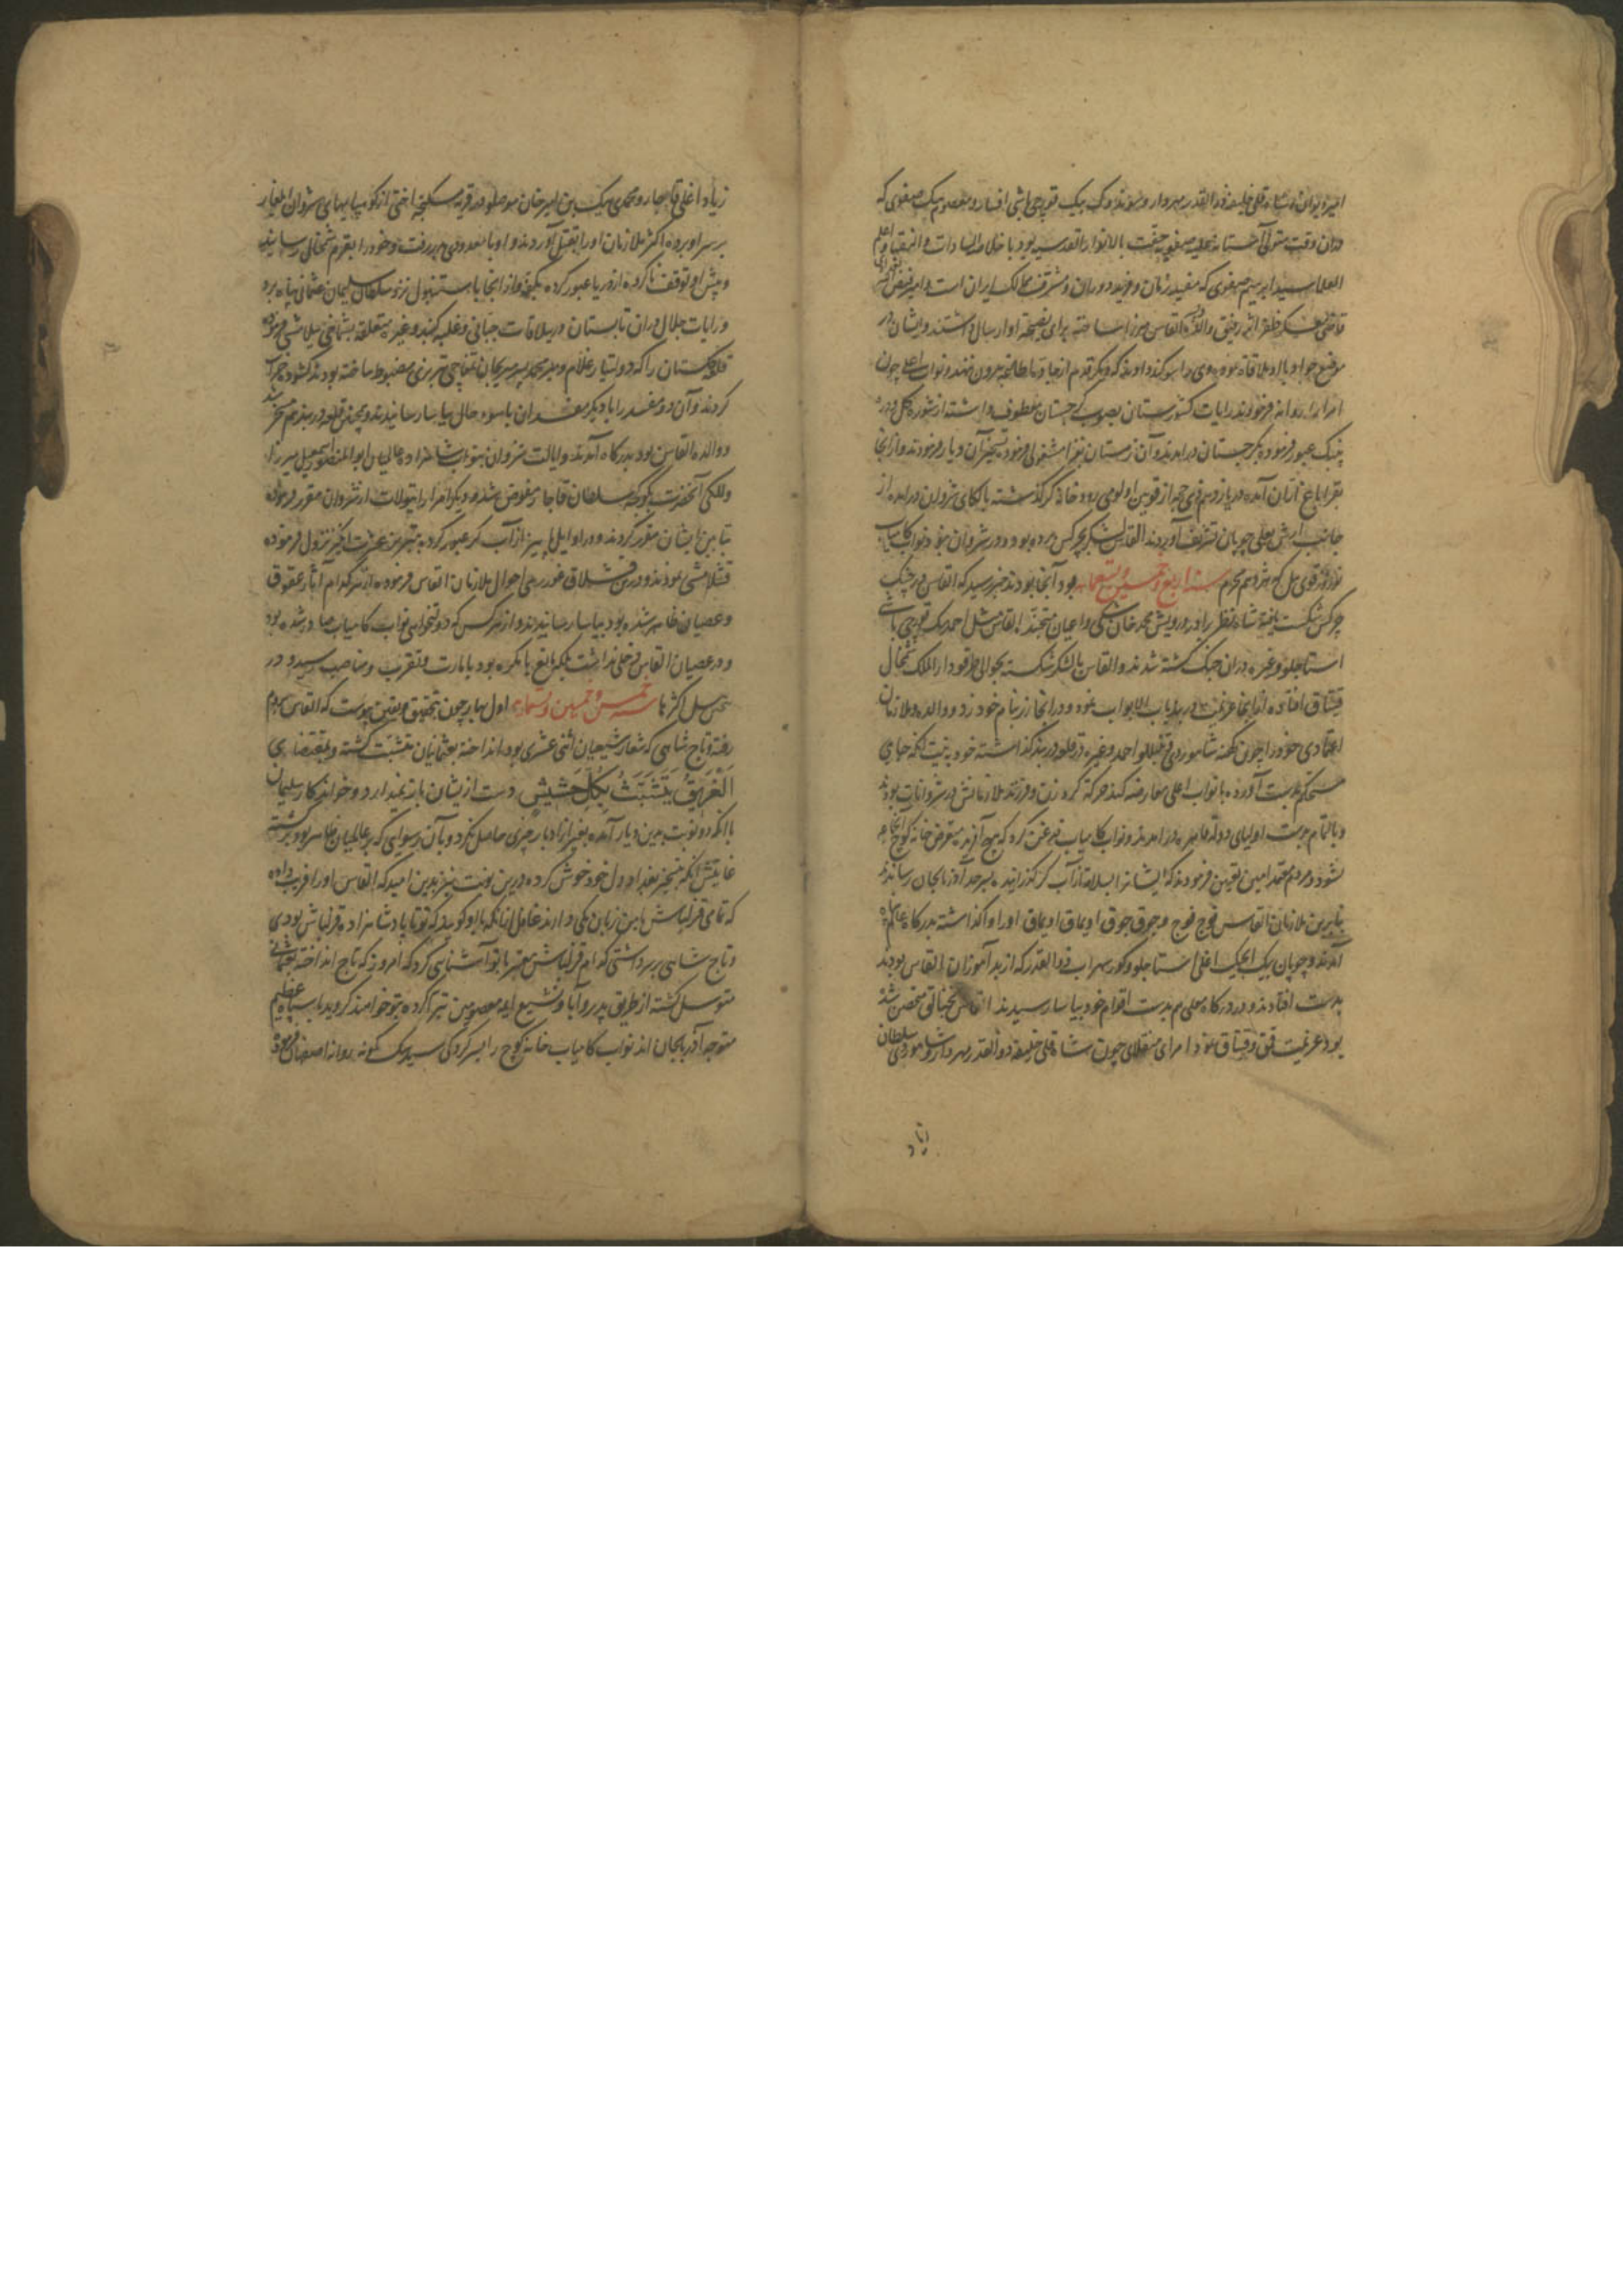 امیر دیوان و شاه قلی خلیفه ذو القدر مهردار و سوندوک بیک قورچی باشی افشار و معصوم بیک صفوی که
دران وقت متولی آستانه علیه صفویه حفت بالانوار القدسیه بود با خلاصة السادات و النقبا اعلم
العلما سید ابرهیم صفوی که مفید زمان و فرید دوران و مشرف ممالک ایران است و امیر
قاضی عسکر ظفر اثر رفیق والده القاس میرزا ساخته برای نصیحت او ارسال داشتند و ایشان در
موضع جواد با او ملاقات نموده وی را سوکند دادند که دیکر قدم از جاده اطاعت بیرون ننهد و نواب اعلی چون
امرا را روانه فرمودند رایات کشورستان بصوب کرجستان معطوف داشته از شوره کل و
پنبک عبور فرموده بکرجستان درامدند و آن زمستان بغزا مشغولی فرموده تسخیر آن دیار فرمودند و از انجا
بقراباغ اران آمده در یازدهم ذی حجه از قوین اولومی رودخانه کر کذشته بالکای شروان درامده از
جانب ارش بعلی چوبان تشریف آوردند القاس لشکر بچرکس برده بود و در شروان نبود نواب کامیاب
نوروز قوی ئیل که هژدهم محرم سنه اربع و خمسین و تسعمایه بود آنجا بودند خبر رسید که القاس در جنک
چرکس شکست یافته شاه نظر راودر و درویش محمد خان شکی و اعیان متجنده القاس مثل احمد بیک قورچی باشی
استاجلو و غیره دران جنک کشته شدند و القاس با لشکر شکسته بحوالی طرقو دار الملک شمخال
قیتاق افتاده از انجا عزیمت دربند باب الابواب نموده و در انجا زر بنام خود زد و والده و ملازمان
اعتمادی خود را چون کهنه شاهوردی قبللو احمد و غیره در قلعه دربند کذاشته خود به نیت انکه جای
مستحکم بدست آورده با نواب اعلی معارضه کند حرکت کرده زن و فرزند ملازمانش در شروانات بودند
و بالتمام بدست اولیای دولت قاهره درامدند و نواب کامیاب غدغن کرد که هیچ آفریده متعرض خانه کوچ انجماعه
نشود و مردم معتمد امین تعیین فرمودند که ایشانرا بسلامت از آب کر کذرانیده بسرحد آذربایجان رسانند
بنابرین ملازمان القاس فوج فوج و جوق جوق اویماق اویماق او را واکذاشته بدرکاه عالم پناه
آمدند و چوپان بیک ایبک اغلی استاجلو و کور سهراب ذوالقدر که از بد آموزان القاس بودند
بدست افتادند و در درکاه معلی هم بدست اقوام خود بیاسا رسیدند القاس بخنالق متحصن شده
بود عزیمت قیتاق نمود امرای منقلای چون شاه قلی خلیفه ذوالقدر مهردار و شاهوردی سلطان
زیاد
زیاد اغلی قاجار و محمدی بیک بن امیر خان موصلو در قریه سکنجه اختی از کوهپایهای شروان ایلغار
بر سر او برده اکثر ملازمان او را بقتل آوردند و او با معدودی بدر رفت و خود را بقرم شمخال رسانید
و پیش او توقف ناکرده از دریا عبور کرده بکفه و از انجا باستنبول نزد سلطان سلیمان عثمانی پناه برد
و رایات جلال دران تابستان در ییلاقات جبانی و غلبه کند و غیره متعلقه بشماخی ییلامشی فرموده
قلعه کلستان را که دولتیار غلام و میر محمد پسر میرجان تمغاچی تبریزی مضبوط ساخته بودند کشوده خراب
کردند و آن دو مفسد را با دیکر مفسدان باسوء حال بیاسا رسانیدند و همچنین قلعه دربند هم مسخر شد
و والده القاس بود بدرکاه آمدند و ایالت شروان بنواب شاهزاده عالمیان ابو المنصور اسمعیل میرزا
و للکی آنحضرت بکوکجه سلطان قاجار مفوض شد و دیکر امرا را تیولات از شروان مقرر فرموده
تیابین ایشان مقرر کردند و در اوایل پاییز از آب کر عبور کرده بتبریز عشرت انکیز نزول فرموده
قشلامشی نمودند و درین قشلاق غوررسی احوال ملازمان القاس فرموده از هر کدام آثار عقوق
و عصیان ظاهر شده بود بیاسا رسانیدند و از هر کس که دولتخواهی نواب کامیاب صادر شده بود
و در عصیان القاس دخلی نداشت بلکه مانع بامکره بود بامارت و تقرب و مناصب رسید و در
تخسل اکثرها سنه خمس و خمسین و تسعمایه اول بهار چون بتحقیق و یقین پیوست که القاس بروم
رفته و تاج شاهی که شعار شیعیان اثنی عشری بود انداخته بعثمانیان متشبث کشته و بمقتضای
اَلْغَرِیقُ یَتَشَبَّثُ بِکُلِّ حَشِیشٍ دست ازیشان باز نمیدارد و خواندکار سلیمان
با انکه دو نوبت بدین دیار آمده بغیر از ادبار چیزی حاصل نکرد و بآن رسوایی که بر عالمیان ظاهر بود برکشته
غایتش انکه بتسخیر بغداد دل خود خوش کرده درین نوبت نیز بدین امید که القاس او را فریب داده
که تمامی قزلباش با من زبان یکی دارند غافل از انکه با او کویند که تو تا پادشاهزاده قزلباش بودی
و تاج شاهی بر سر داشتی کدام قزلباش معتبر با تو آشنایی کرد که امروز که تاج انداخته بعثمانی
متوسل کشته از طریق پدر و آبا و تشیع ایمه معصومین تبرا کرده بتو خواهند کروید با سپاه عظیم
متوجه آذربایجان شد نواب کامیاب خانه کوچ را بسرکردکی سید بیک کمونه روانه اصفهان فرمودند